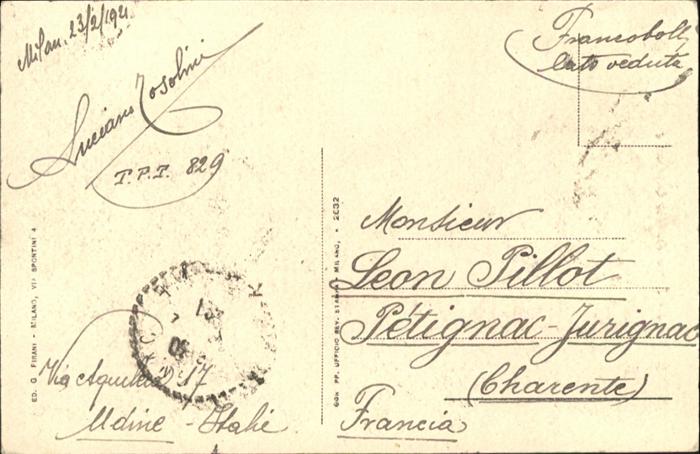 Milan. 23/2/1921
Francobolli
lato veduta
Luciano Tosolini
T.P.T. 829
Monsieur
Leon Pillot
Pétignac-Jurignac
(Charente)
Francia
Via Aquileia 17
Udine - Italie
ED. G. FIRANI - MILANO, VIA SPONTINI 4
CON PP. UFFICIO REV. STAMPA, MILANO, • 2632